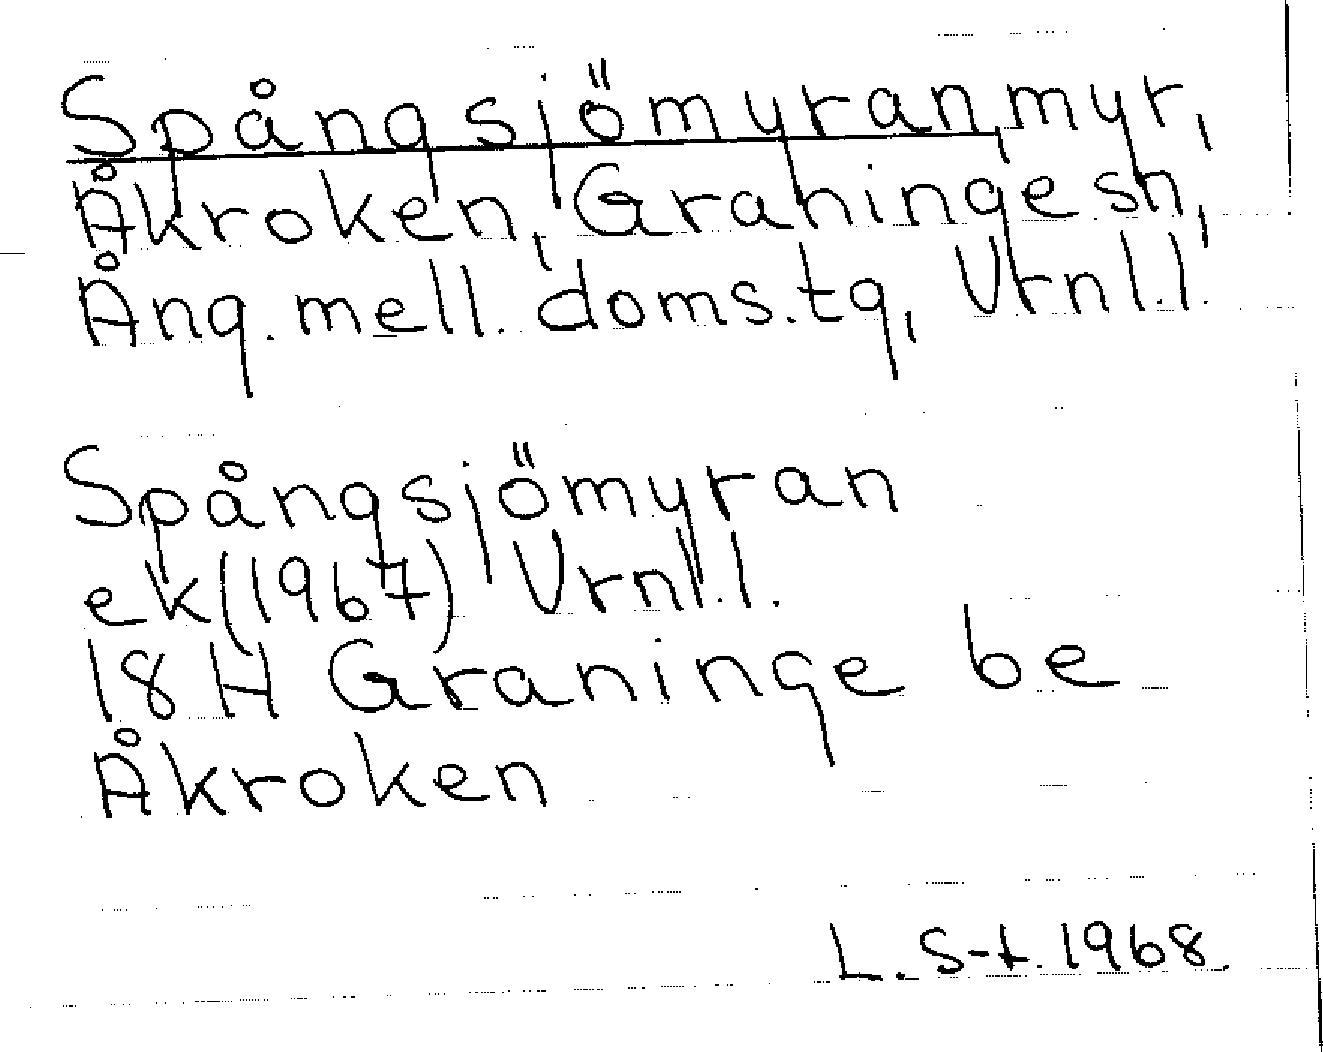 Spångsjömyran, myr,
Åkroken, Graninge sn,
Ång. mell. doms.tg, Vrnl.l.
Spångsjömyran
ek (1967) Vrnl.l.
18 H Graninge be
Åkroken
L. S-t. 1968